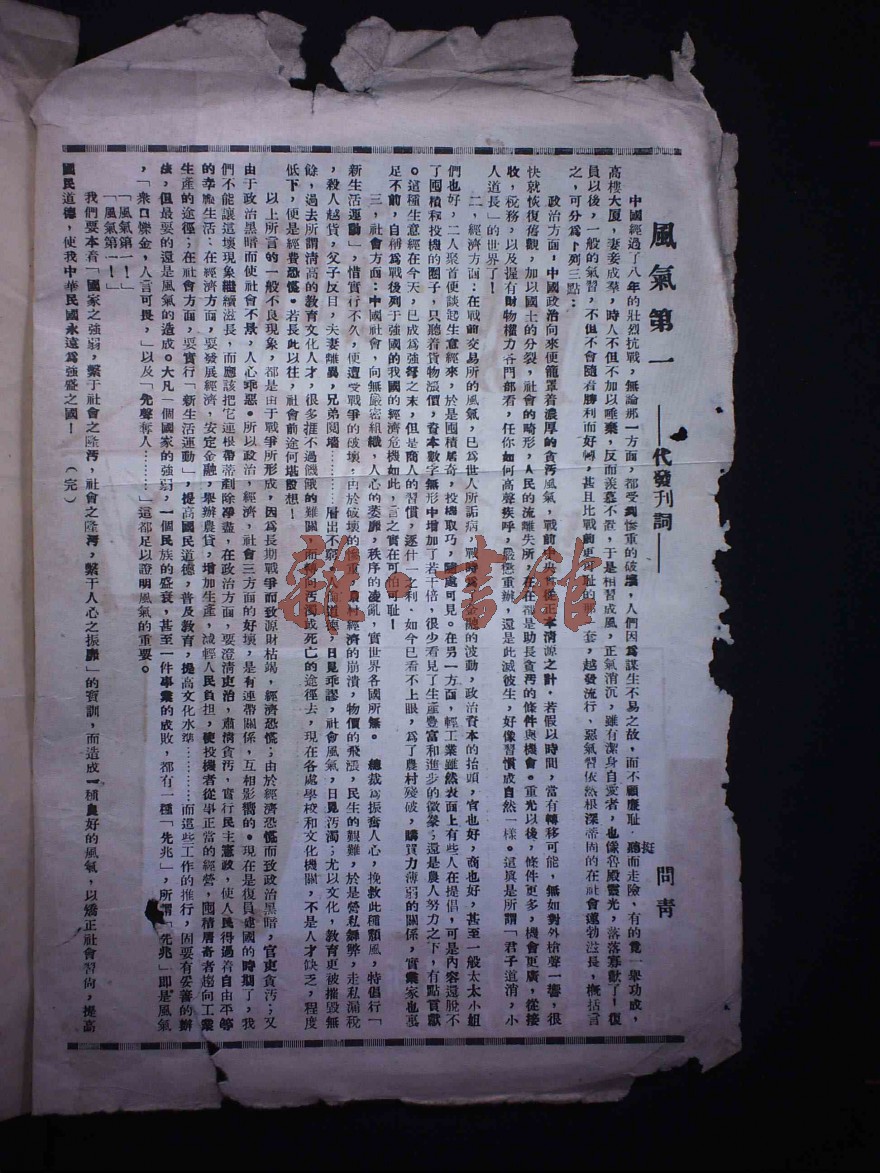 風氣第一
——代發刊詞——
問青
中國經過了八年的壯烈抗戰，無論那一方面，都受到慘重的破壞，人們因為謀生不易之故，而不顧廉耻，挺而走險，有的竟一舉功成，
高樓大厦，妻妾成羣，時人不但不加以唾棄，反而羨慕不置，于是相習成風，正氣消沉，雖有潔身自愛者，也像魯殿靈光，落落寡歡了！復
員以後，一般的氣習，不但不會隨着勝利而好轉，甚且比戰前更可耻的那一套，越發流行，惡氣習依然根深蒂固的在社會蓬勃滋長，概括言
之，可分為下列三點：
政治方面，中國政治向來便籠罩着濃厚的貪污風氣，戰前中央曾從正本清源之計，若假以時間，當有轉移可能，無如對外槍聲一響，很
快就恢復舊觀，加以國土的分裂，社會的畸形，人民的流離失所，在在都是助長貪污的條件與機會。重光以後，條件更多，機會更廣，從接
收，税務，以及握有財物權力各門部看，任你如何高聲疾呼，嚴懲重辦，還是此滅彼生，好像習慣成自然一樣。這眞是所謂「君子道消，小
人道長」的世界了！
二，經濟方面：在戰前交易所的風氣，已為世人所詬病，戰時為金融的波動，政治資本的抬頭，官也好，商也好，甚至一般太太小姐
們也好，二人聚首便談起生意經來，於是囤積居奇，投機取巧，隨處可見。在另一方面，輕工業雖然表面上有些人在提倡，可是內容還脫不
了囤積和投機的圈子，只聽着貨物漲價，資本數字無形中增加了若干倍，很少看見了生產豐富和進步的徵象；還是農人努力之下，有點貢獻
。這種生意經在今天，已成為強弩之末，但是商人的習慣，逐什一之利，如今已看不上眼，為了農村殘破，購買力薄弱的關係，實業家也裹
足不前，自稱為戰後列于強國的我國的經濟危機如此，言之實在可怕可耻！
三，社會方面：中國社會，向無嚴密組織，人心的萎靡，秩序的凌亂，實世界各國所無。　總裁為振奮人心，挽救此種頹風，特倡行「
新生活運動」，惜實行不久，便遭受戰爭的破壞，由於破壞的慘重，農村經濟的崩潰，物價的飛漲，民生的艱難，於是營私舞弊，走私漏稅
，殺人越貨，父子反目，夫妻離異，兄弟鬩墻…………層出不窮，人倫道德，日見乖謬，社會風氣，日見污濁；尤以文化，教育更被摧毀無
餘，過去所謂清高的教育文化人才，很多捱不過饑餓的難關，而轉向污濁或死亡的途徑去，現在各處學校和文化機關，不是人才缺乏，程度
低下，便是經費恐慌。若長此以往，社會前途何堪設想！
以上所言的一般不良現象，都是由于戰爭所形成，因為長期戰爭而致源財枯竭，經濟恐慌；由於經濟恐慌而致政治黑暗，官吏貪污；又
由于政治黑暗而使社會不景，人心乖惡。所以政治，經濟，社會三方面的好壞，是有連帶關係，互相影嚮的。現在是復員建國的時期了，我
們不能讓這壞現象繼續滋長，而應該把它連根帶蒂剷除淨盡，在政治方面，要澄清吏治，肅清貪污，實行民主憲政，使人民得過着自由平等
的幸福生活；在經濟方面，要發展經濟，安定金融，舉辦農貸，增加生產，減輕人民負担，使投機者從事正當的經營，囤積居奇者趨向工業
生產的途徑；在社會方面，要實行「新生活運動」，提高國民道德，普及教育，提高文化水準…………而這些工作的推行，固要有妥善的辦
法，但最要的還是風氣的造成。大凡一個國家的強弱，一個民族的盛衰，甚至一件事業的成敗，都有一種「先兆」，所謂「先兆」即是風氣
，「衆口鑠金，人言可畏，」以及「先聲奪人………」這都足以證明風氣的重要。
「風氣第一！」
「風氣第一！」
我們要本着「國家之強弱，繫于社會之隆污，社會之隆污，繫于人心之振靡」的寶訓，而造成一種良好的風氣，以矯正社會習向，提高
國民道德，使我中華民國永遠為強盛之國！　（完）
雜·書館